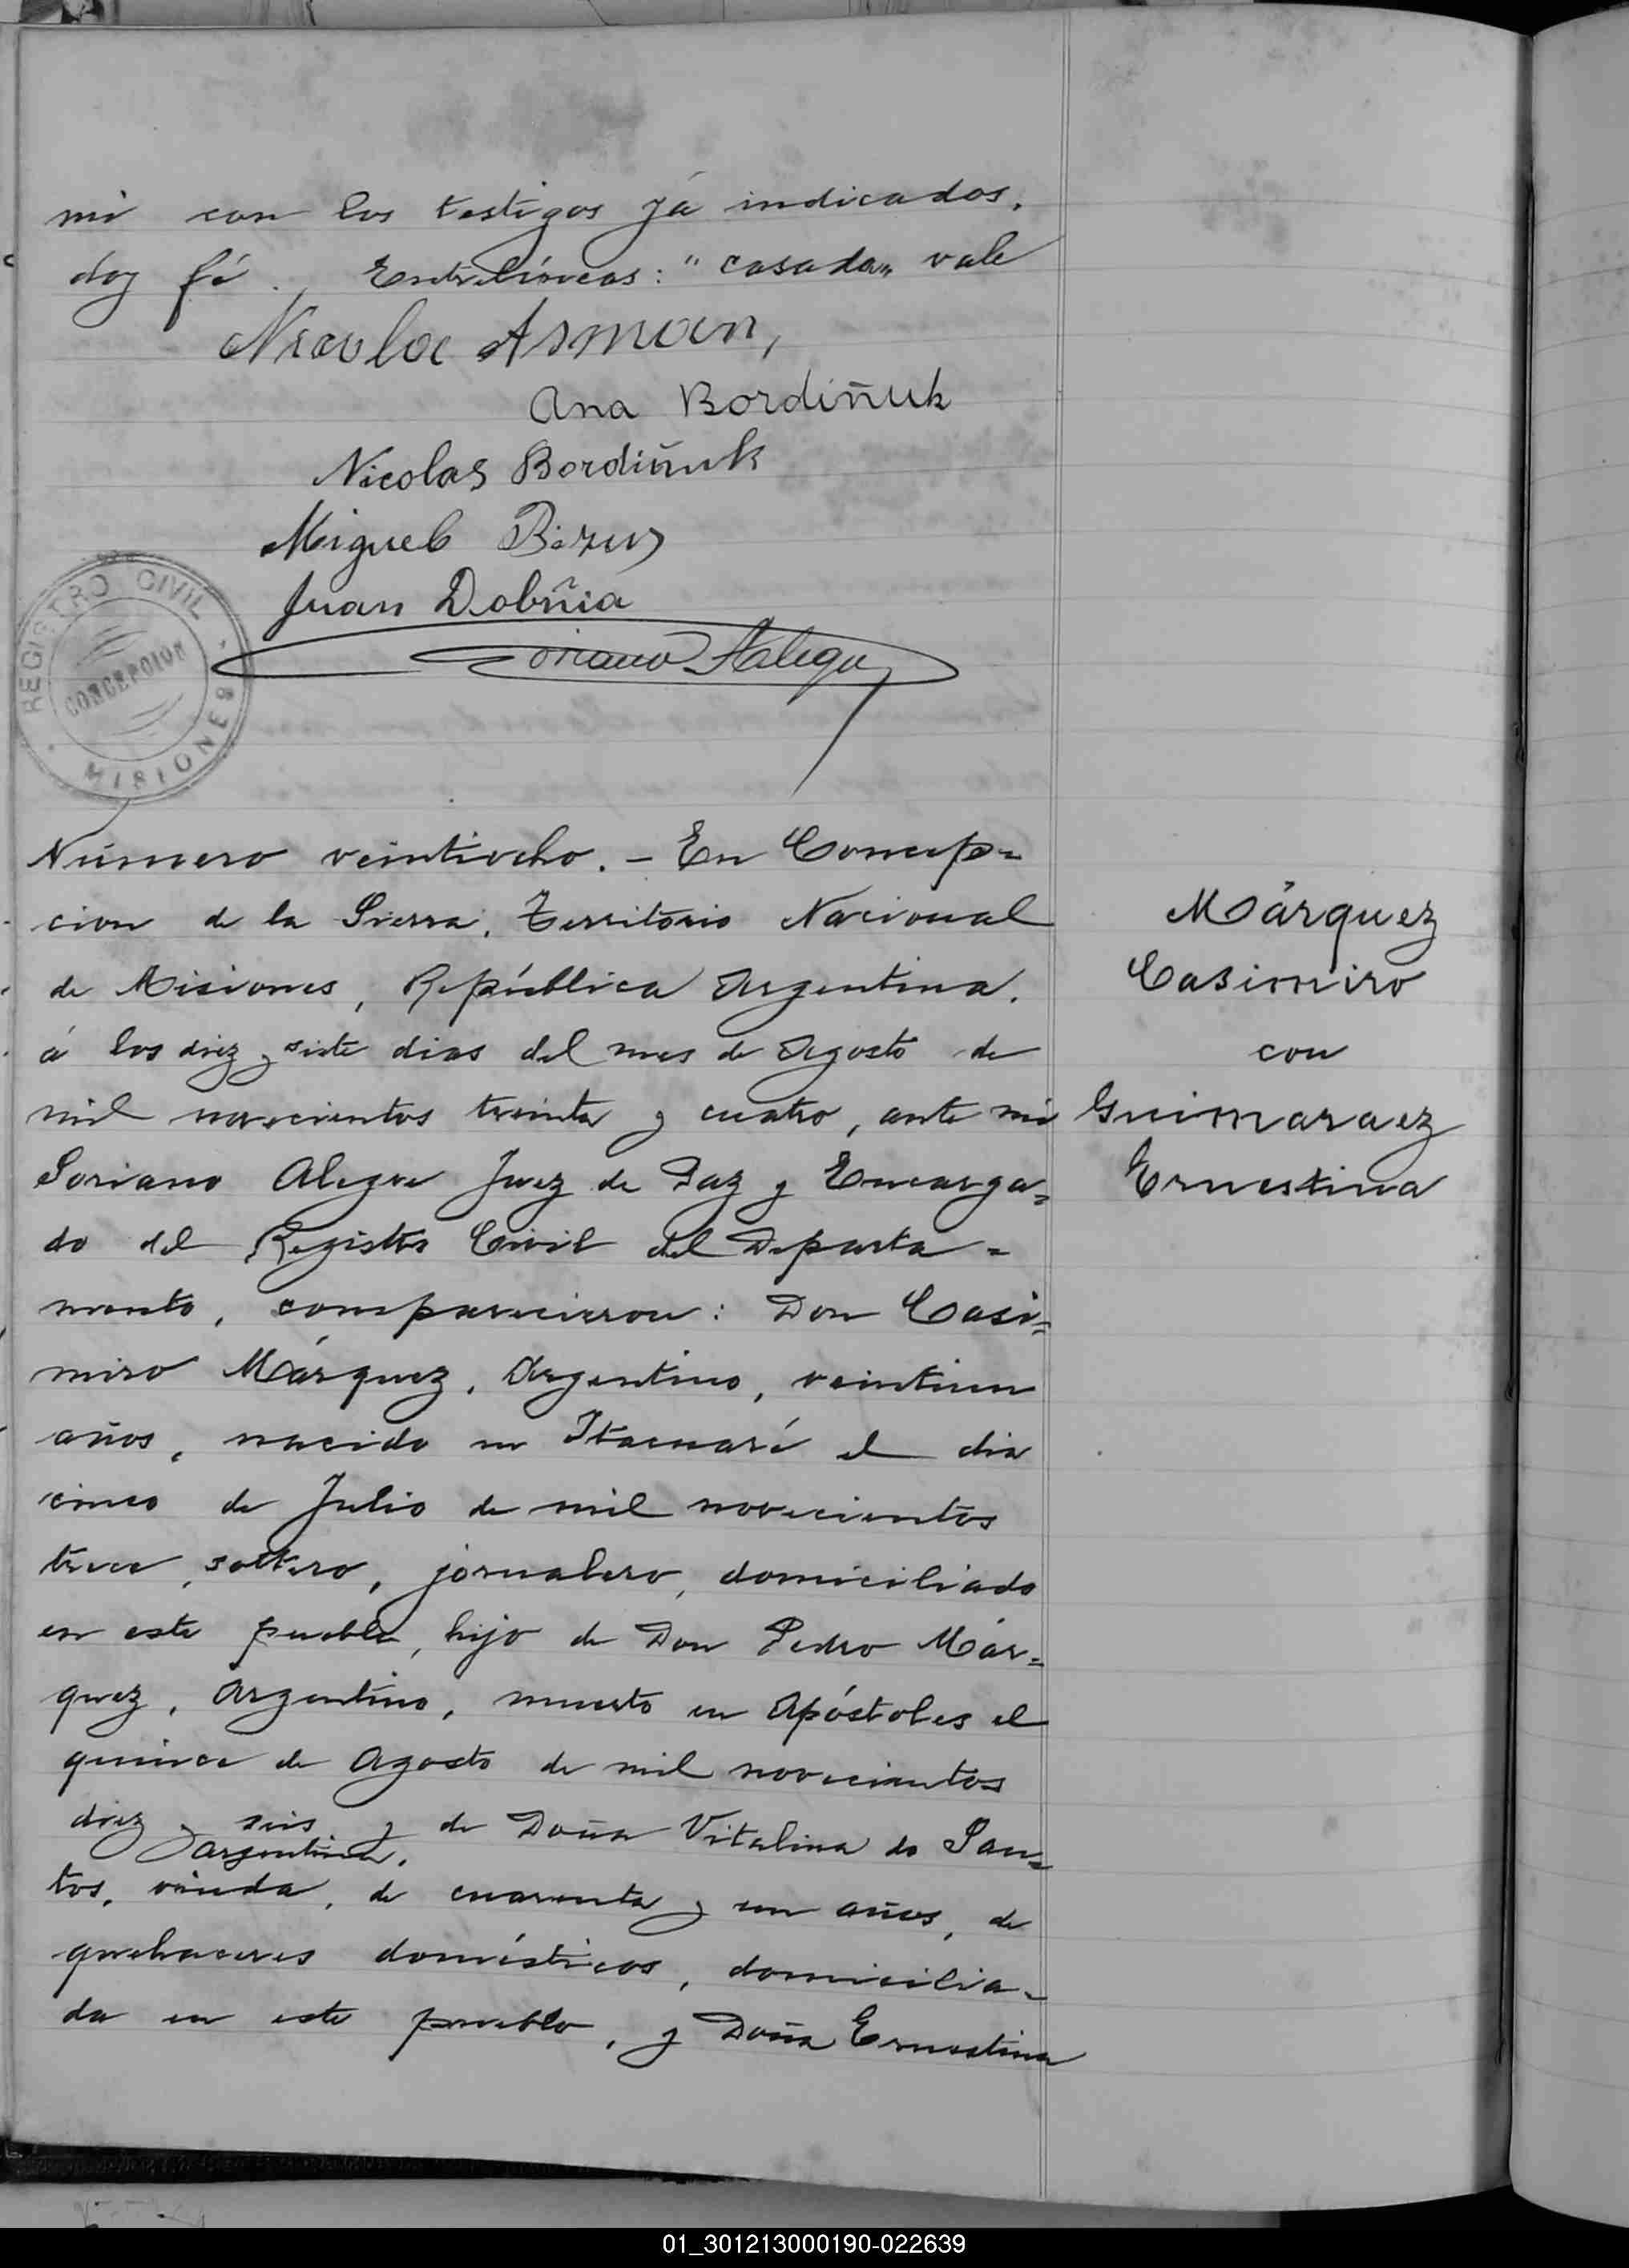 mi con los testigos já indicados.
doy fé. Entrelíneas: "casada" vale
Nicolae Asman,
Ana Bordiñuk
Nicolas Bordiñuk
Miguel
Juan Dobñia
Soriano Alegre
REGISTRO CIVIL
CONCEPCION
MISIONES
Número veintiocho. - En Concep=
cion de la Sierra, Territorio Nacional
de Misiones, República Argentina,
á los diez y siete dias del mes de Agosto de
mil novecientos treinta y cuatro, ante mi
Soriano Alegre Juez de Paz y Encarga=
do del Registro Civil del Departa=
mento, comparecieron: Don Casi=
miro Márquez, Argentino, veintiun
años, nacido en Itacuaré el dia
cinco de Julio de mil novecientos
trece, soltero, jornalero, domiciliado
en este pueblo, hijo de Don Pedro Már=
quez, Argentino, muerto en Apóstoles el
quince de Agosto de mil novecientos
diez y seis y de Doña Vitalina do San=
argentina,
tos, viuda, de cuarenta y un años, de
quehaceres domésticos, domicilia=
da en este pueblo, y Doña Ernestina
Márquez
Casimiro
con
Guimaraez
Ernestina
01_301213000190-022639